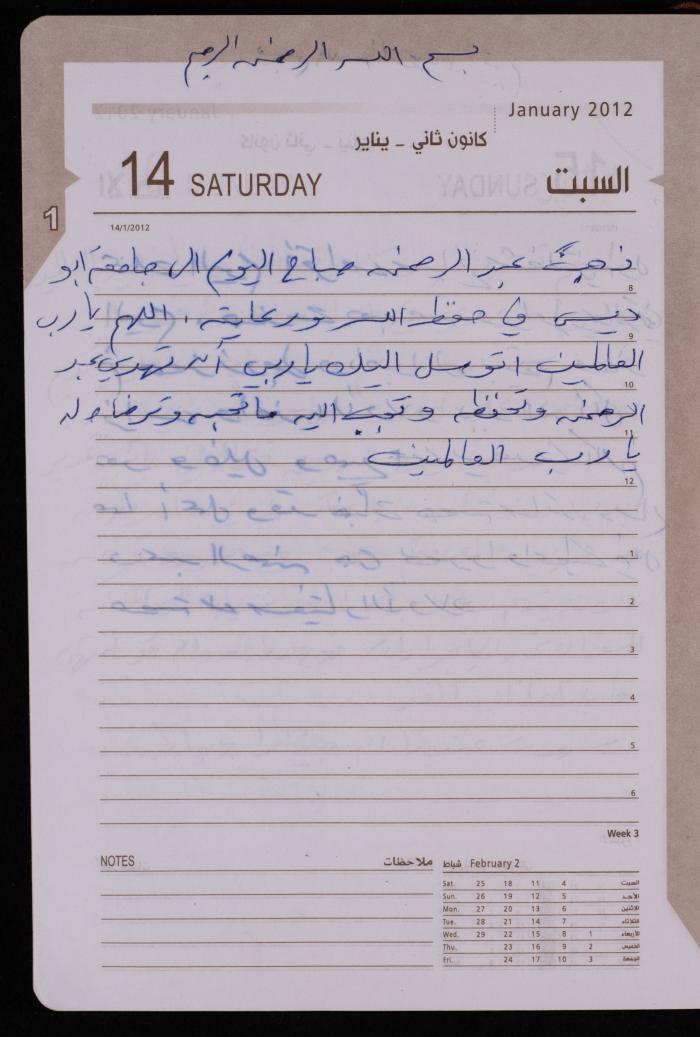 بسم الله الرحمن الرحيم
January 2012
كانون ثاني - يناير
14 SATURDAY السبت
1
14/1/2012
ذهب عبد الرحمن صباح اليوم الى جامعة ابو
8
ديس في حفظ الله ورعايته . اللهم يا رب
9
العالمين اتوسل اليك يا ربي أن تهدي عبد
10
الرحمن وتحفظه وتحبب اليه ما تحبه وترضاه له
11
يا رب العالمين
12
1
2
3
4
5
6
Week 3
NOTES ملاحظات
شباط February 2
Sat. 25 18 11 4 السبت
Sun. 26 19 12 5 الأحد
Mon. 27 20 13 6 الاثنين
Tue. 28 21 14 7 الثلاثاء
Wed. 29 22 15 8 1 الأربعاء
Thu. 23 16 9 2 الخميس
Fri. 24 17 10 3 الجمعة